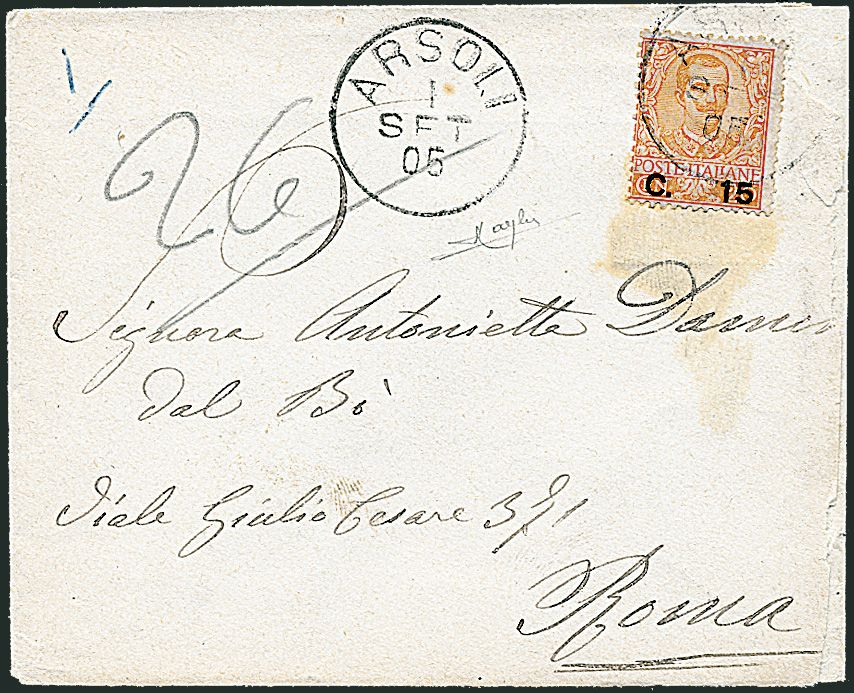 ARSOLI
1
SET
05
05
POSTE ITALIANE
C. 15
26
Signora Antonietta
dal Bò
Viale Giulio Cesare 371
Roma